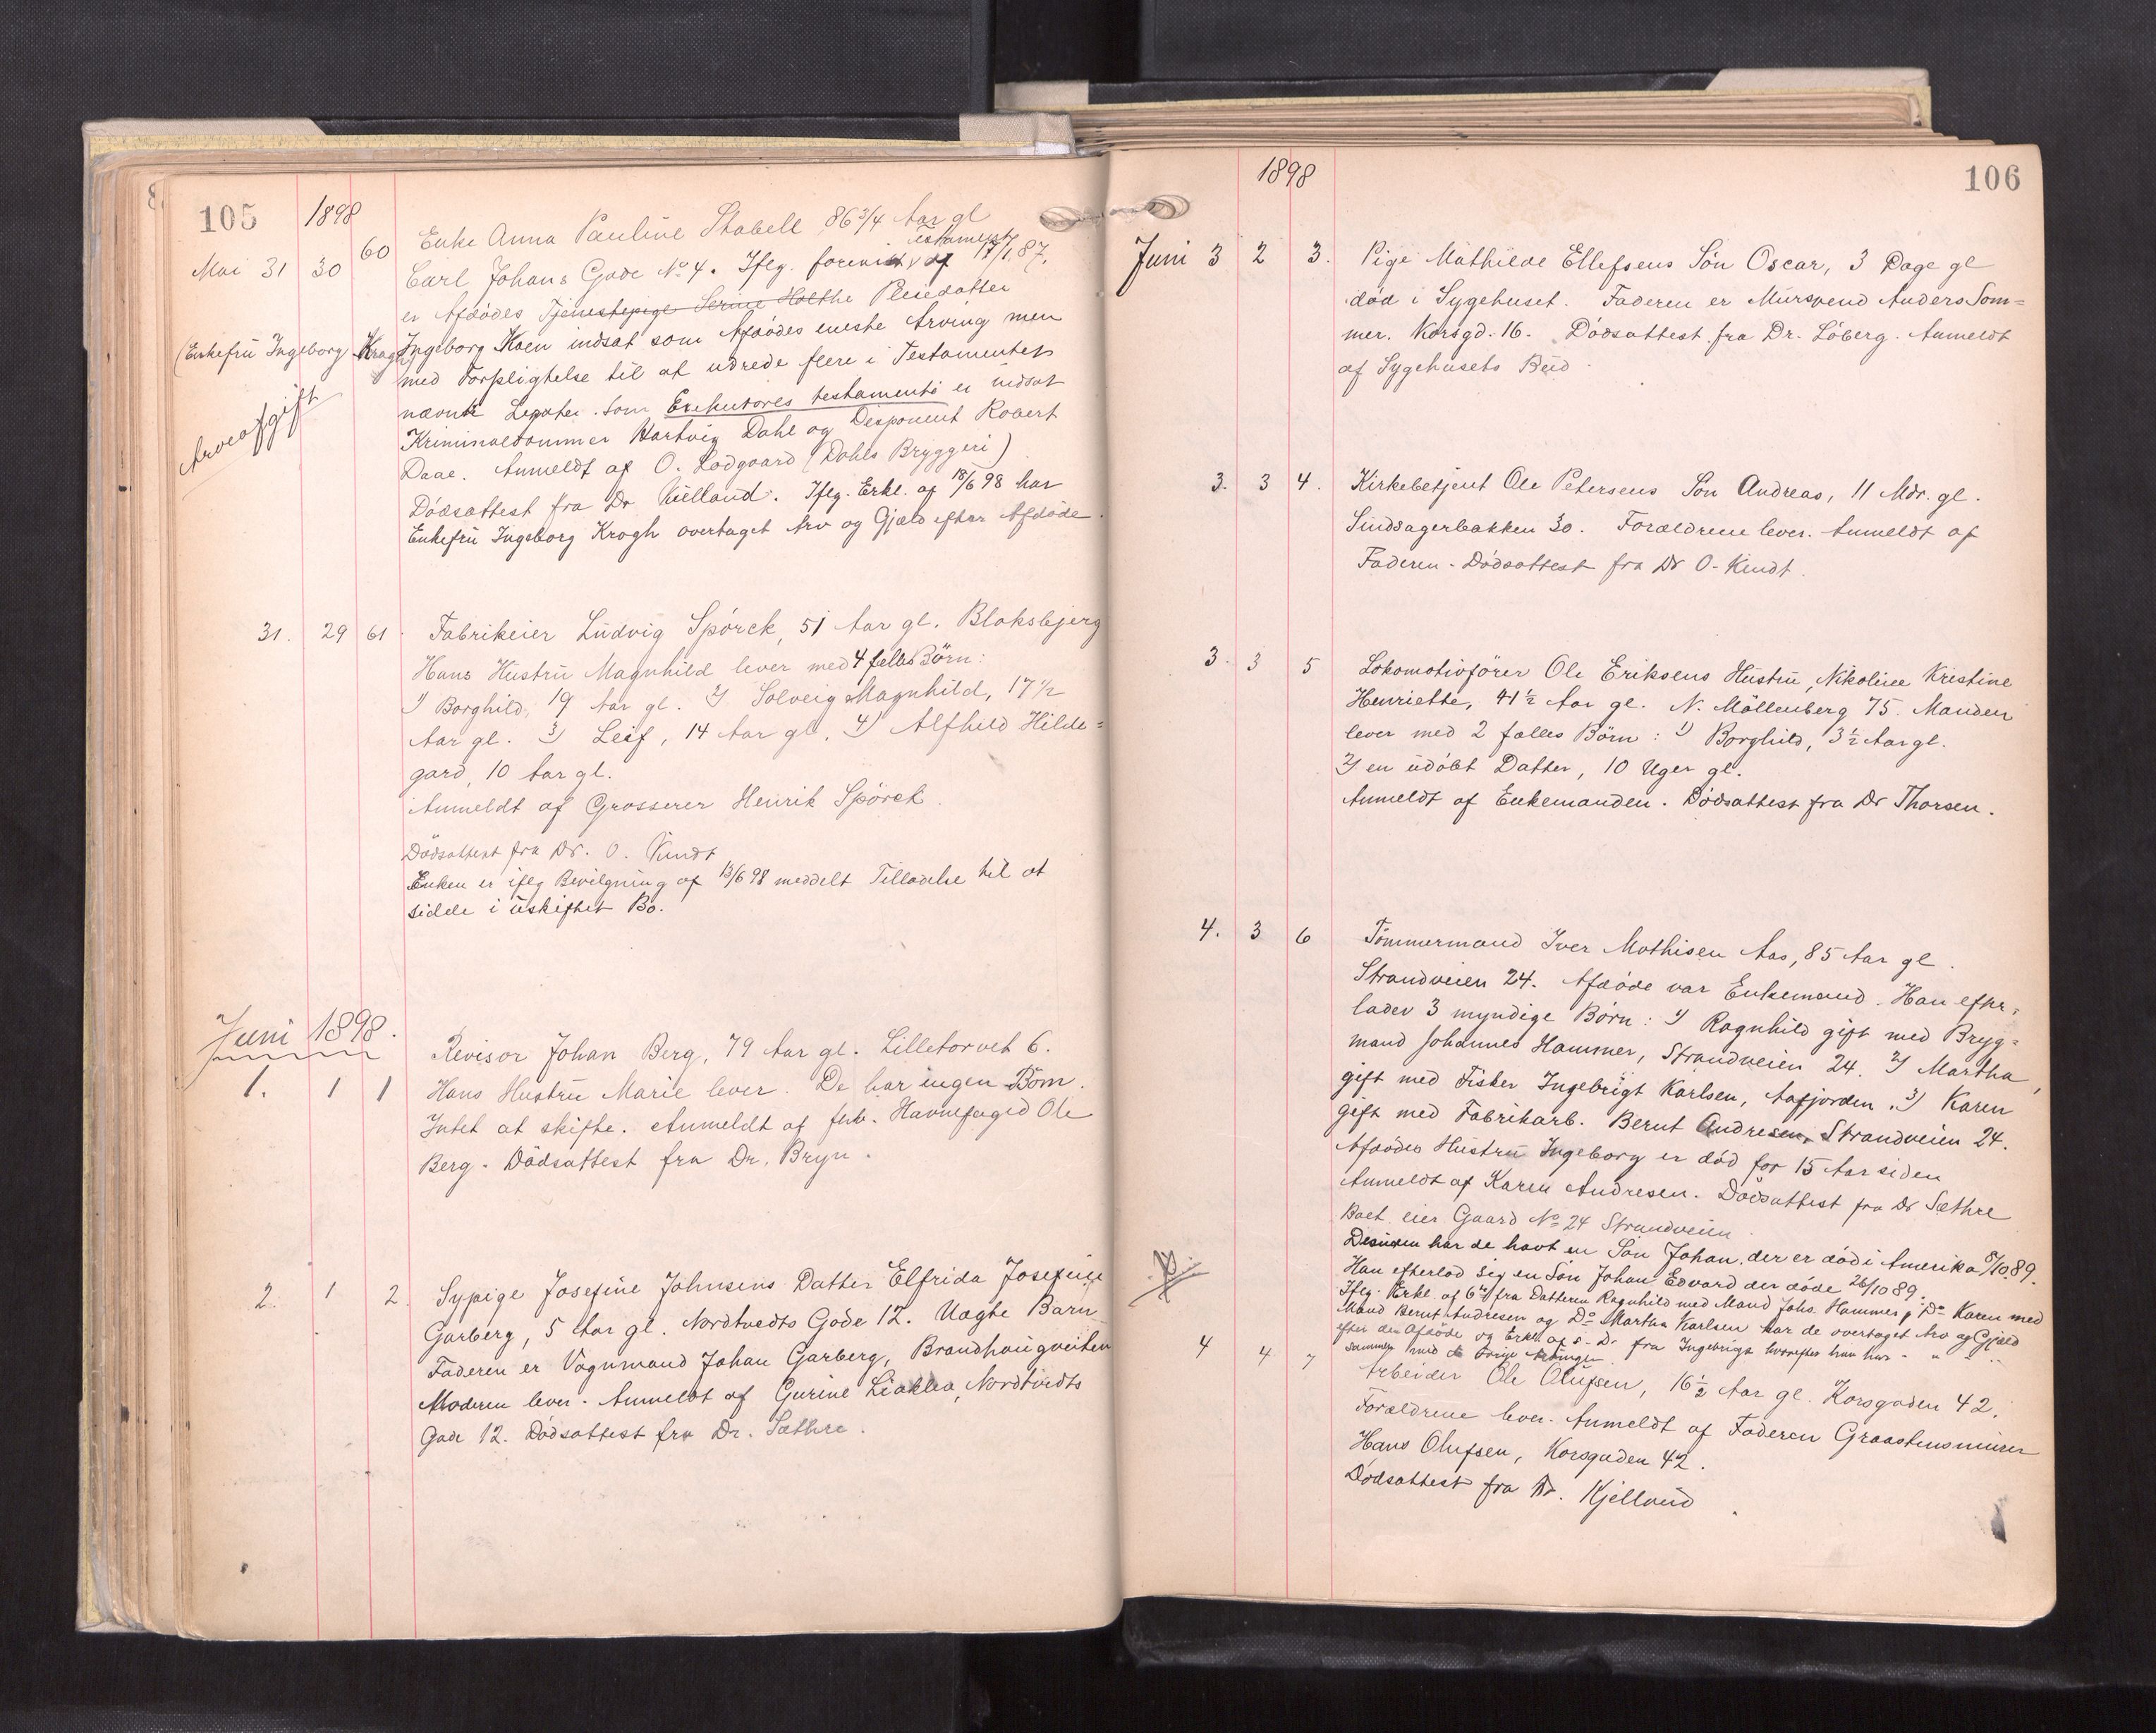 105
1898
Mai 31 30 60 Enke Anna Pauline Stabell 86 3/4 Aar gl
Carl Johans Gade No 4. Iflg. forevist Testament af 17/1 87.
er Afdødes Tjenestepige Serine Holthe Pleiedatter
(Enkefru Ingeborg Krogh) Ingeborg Koen indsat som Afdødes eneste Arving men
med Forpligtelse til at udrede flere i Testamentet
Arveafgift
nævnte Legater. Som Executores testamenti er indsat
Kriminaldommer Hartvig Dahl og Disponent Robert
Daae. Anmeldt af O. Lodgaard (Dahls Bryggeri)
Dødsattest fra Dr Kielland. Iflg. Erkl. af 18/6 98 har
Enkefru Ingeborg Krogh overtaget Arv og Gjæld efter Afdøde.
31. 29 61. Fabrikeier Ludvig Spörck, 51 Aar gl. Bloksbjerg
Hans Hustru Magnhild lever med 4 fælles Børn:
1) Borghild, 19 Aar gl. 2) Solveig Magnhild, 17 1/2
Aar gl. 3) Leif, 14 Aar gl. 4) Alfhild Hilde=
gard, 10 Aar gl.
Anmeldt af Grosserer Henrik Spörck.
Dødsattest fra Dr. O. Kindt
Enken er iflg Bevilgning af 13/6 98 meddelt Tilladelse til at
sidde i uskiftet Bo.
Juni 1898.
1. 1 1 Revisor Johan Berg, 79 Aar gl. Lilletorvet 6.
Hans Hustru Marie lever. De har ingen Børn.
Intet at skifte. Anmeldt af fhv. Havnefoged Ole
Berg. Dødsattest fra Dr. Bryn.
2. 1 2. Sypige Josefine Johnsens Datter Elfrida Josefine
Garberg, 5 Aar gl. Nordtvedts Gade 12. Uægte Barn
Faderen er Vognmand Johan Garberg, Brandhaugveiten
Moderen lever. Anmeldt af Gurine Liaklea, Nordtvedts
Gade 12. Dødsattest fra Dr. Sæthre.
1898
106
Juni 3 2 3. Pige Mathilde Ellefsens Søn Oscar, 3 Dage gl
død i Sygehuset. Faderen er Mursvend Anders Som=
mer. Korsgd. 16. Dødsattest fra Dr. Löberg. Anmeldt
af Sygehusets Bud.
3. 3 4. Kirkebetjent Ole Petersens Søn Andreas, 11 Mdr. gl.
Sindsagerbakken 30. Forældrene lever. Anmeldt af
Faderen. Dødsattest fra Dr O. Kindt.
3. 3 5 Lokomotivfører Ole Eriksens Hustru, Nikoline Kristine
Henriette, 41 1/2 Aar gl. N. Möllenberg 75. Manden
lever med 2 fælles Børn: 1) Borghild, 3 1/2 Aar gl.
2) en udøbt Datter, 10 Uger gl.
Anmeldt af Enkemanden. Dødsattest fra Dr Thorsen.
4. 3 6 Tømmermand Iver Mathisen Aas, 85 Aar gl.
Strandveien 24. Afdøde var Enkemand. Han efter=
lader 3 myndige Børn: 1) Ragnhild gift med Bryg=
mand Johannes Hammer, Strandveien 24. 2) Martha,
gift med Fisker Ingebrigt Karlsen, Aafjorden. 3) Karen
gift med Fabrikarb. Bernt Andresen, Strandveien 24.
Afdødes Hustru Ingeborg er død for 15 Aar siden
Anmeldt af Karen Andresen. Dødsattest fra Dr Sæthre
Boet eier Gaard No 24 Strandveien.
Desuden har de havt en Søn Johan, der er død i Amerika 8/10 89.
Han efterlod sig en Søn Johan Edvard der døde 26/10 89.
Iflg. Erkl. af fra Datteren Ragnhild med Mand Johs. Hammer, Do Karen med
Mand Bernt Andresen og Do Martha Karlsen har de overtaget Arv og Gjæld
efter den Afdøde og Erkl. af s. D. fra Ingebrigt hvorefter han har " " "
sammen med de øvrige Arvinger.
4 4 7 Arbeider Ole Olufsen, 16 1/2 Aar gl. Korsgaden 42.
Forældrene lever. Anmeldt af Faderen Graastensmurer
Hans Olufsen, Korsgaden 42.
Dødsattest fra Dr. Kjelland.